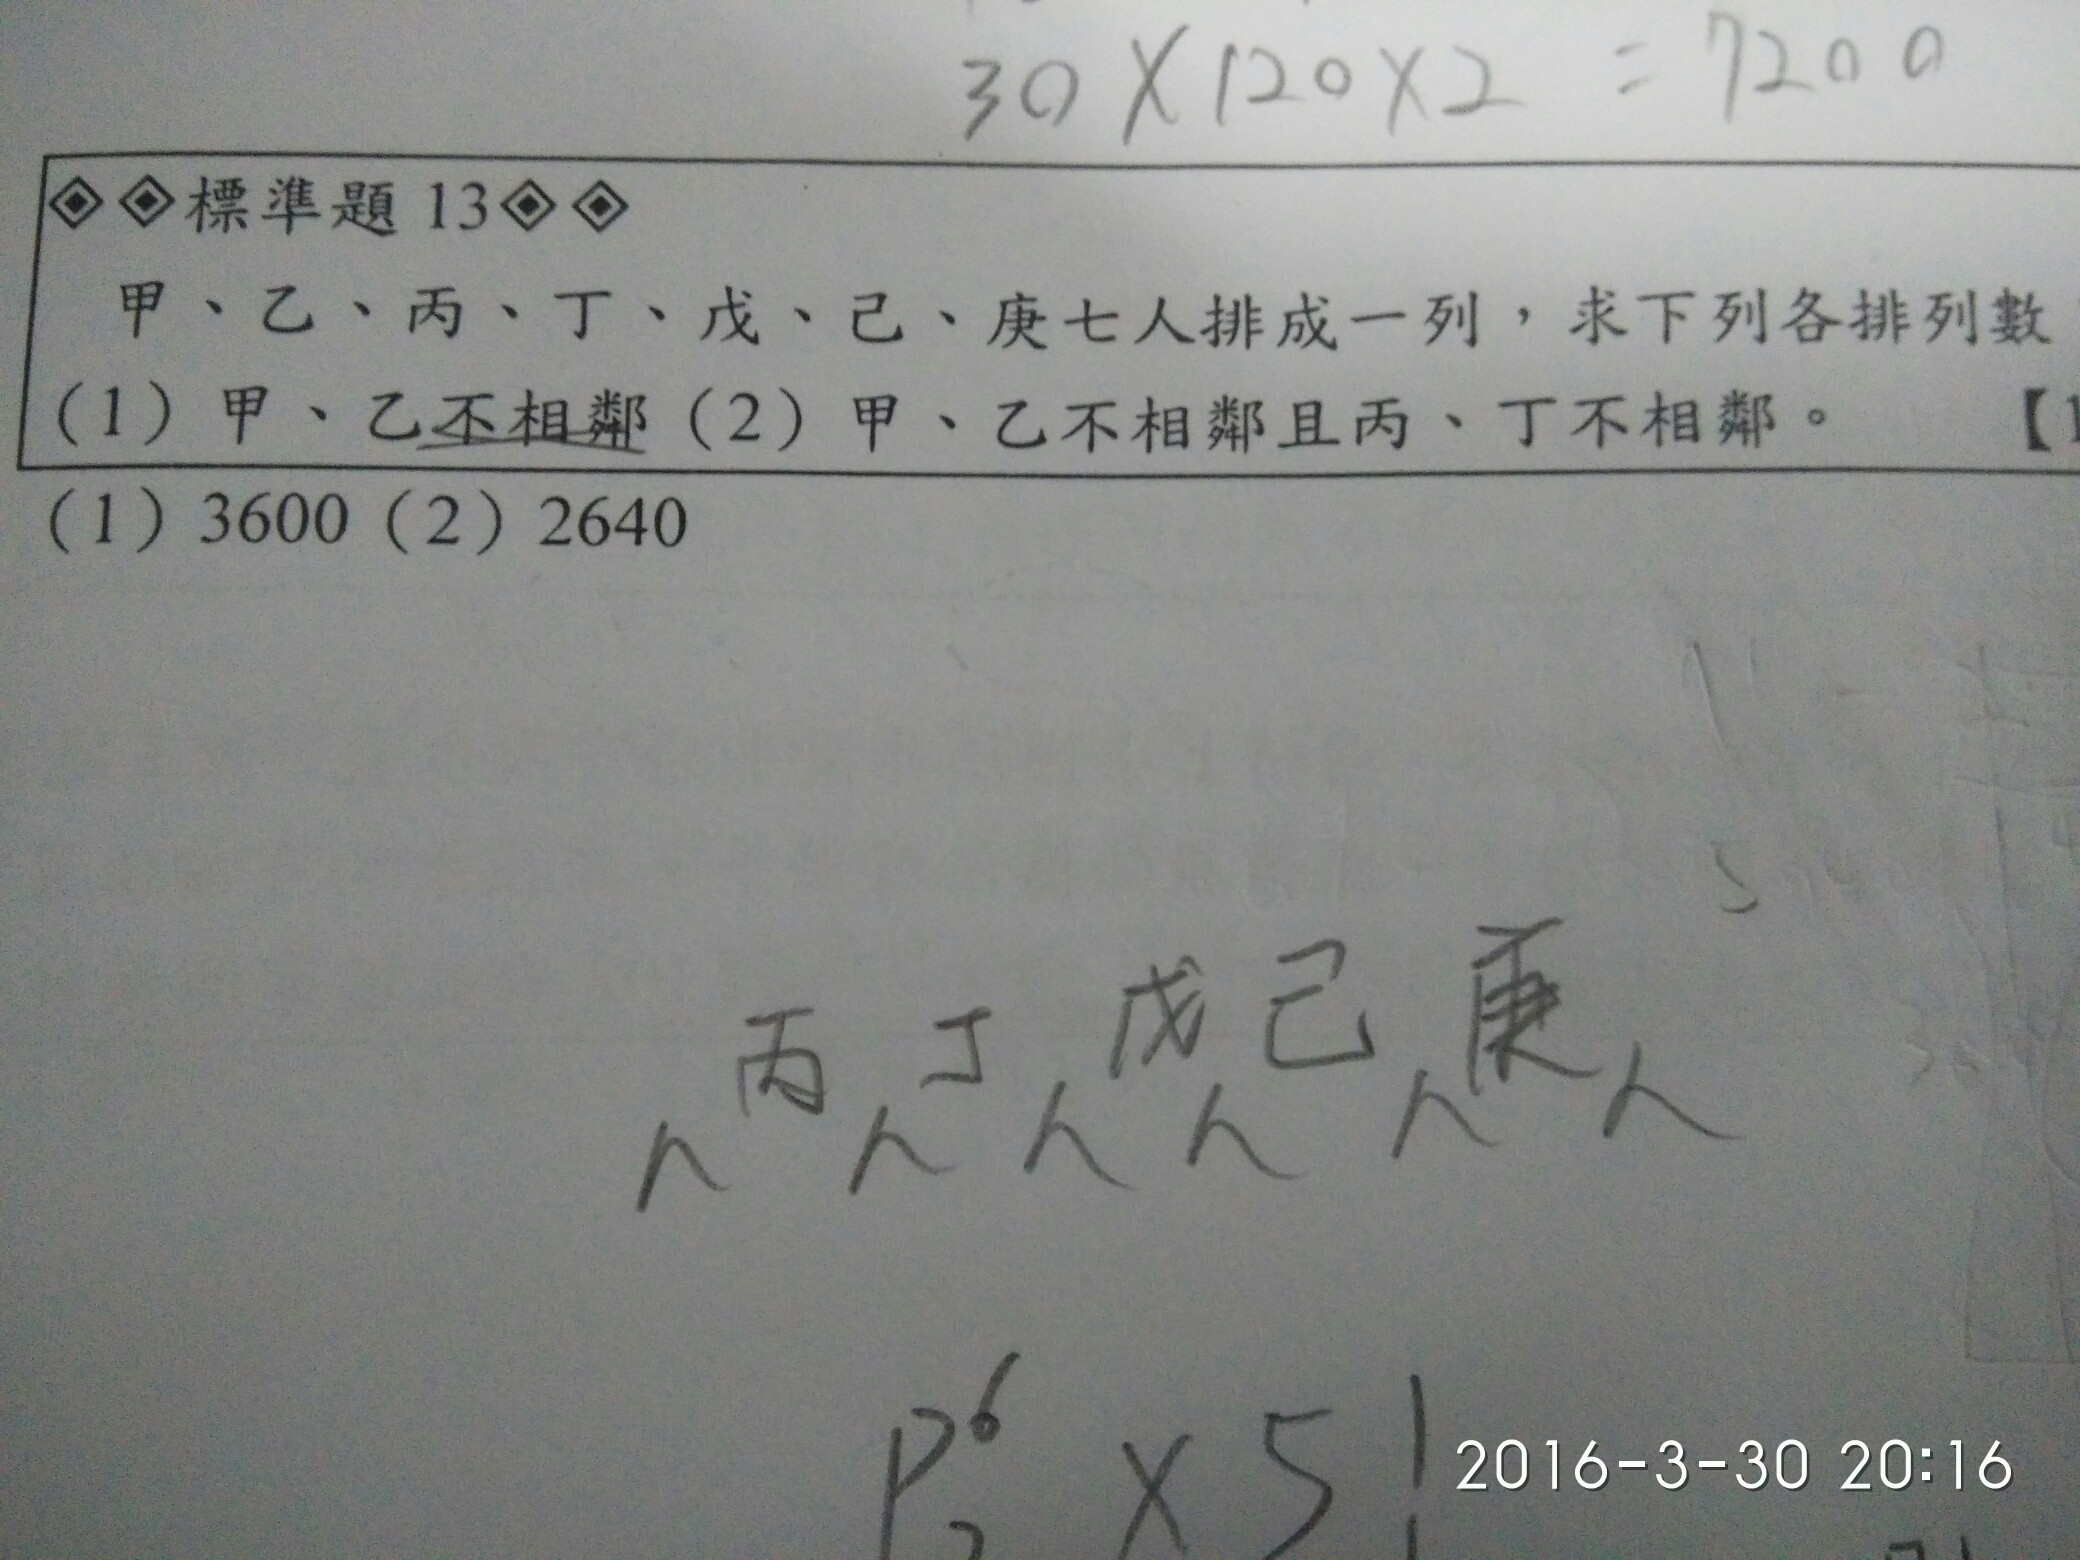 30×120×2=7200
◈◈標準題 13◈◈
甲、乙、丙、丁、戊、己、庚七人排成一列，求下列各排列數
(1) 甲、乙不相鄰 (2) 甲、乙不相鄰且丙、丁不相鄰。 【1
(1) 3600 (2) 2640
丙 丁 戊 己 庚
P⁶₂ × 5!
2016-3-30 20:16